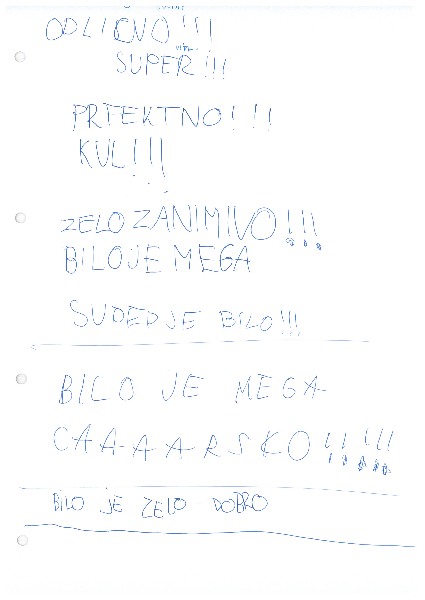 ODLIČNO!!!
SUPER!!!
PRFEKTNO!!!
KUL!!!
ZELO ZANIMIVO!!!
BILO JE MEGA
SUPER JE BILO!!!
BILO JE MEGA
CAAAARSKO!!!!!
BILO JE ZELO DOBRO